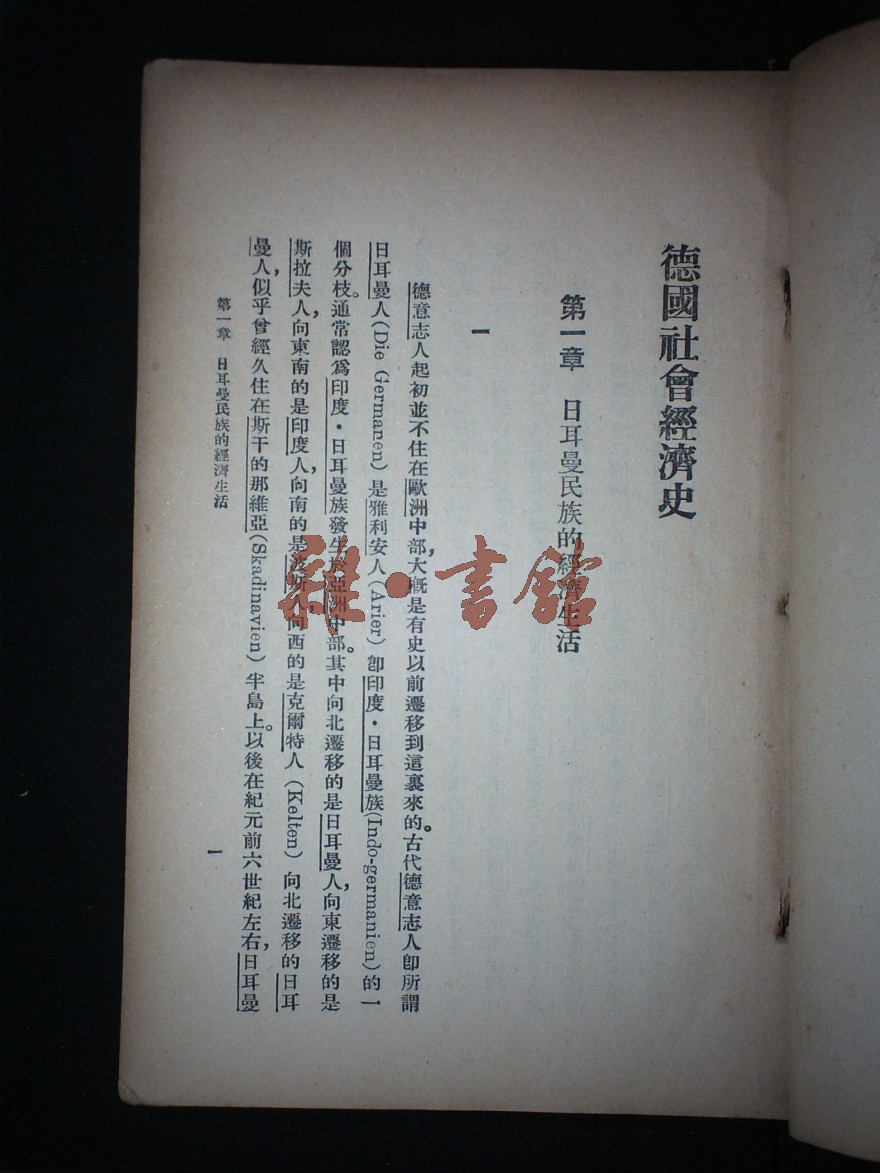 德國社會經濟史
第一章 日耳曼民族的經濟生活
一
德意志人起初並不住在歐洲中部,大概是有史以前遷移到這裏來的。古代德意志人卽所謂
日耳曼人(Die Germanen)是雅利安人(Arier)卽印度・日耳曼族(Indo-germanien)的一
個分枝。通常認爲印度・日耳曼族發生於亞洲中部。其中向北遷移的是日耳曼人,向東遷移的是
斯拉夫人,向東南的是印度人,向南的是波斯人,向西的是克爾特人(Kelten)向北遷移的日耳
曼人,似乎曾經久住在斯干的那維亞(Skadinavien)半島上。以後在紀元前六世紀左右,日耳曼
第一章 日耳曼民族的經濟生活
一
雜・書館